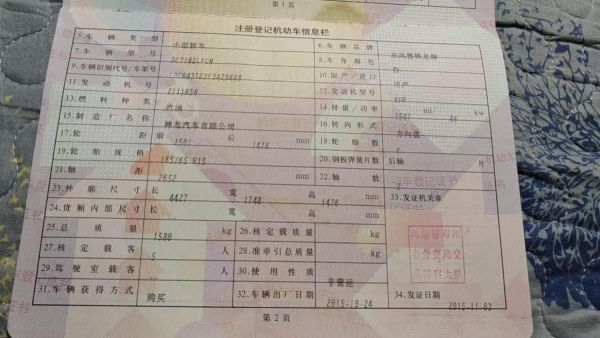 第 1 页
注册登记机动车信息栏
5.车辆类型 小型轿车 6.车辆品牌 东风雪铁龙牌
7.车辆型号 8.车身颜色 白
9.车辆识别代号/车架号 10.国产/进口 国产
11.发动机号 2111656 12.发动机型号
13.燃料种类 汽油 14.排量/功率 1587 ml/ 86 kw
15.制造厂名称 神龙汽车有限公司 16.转向形式 方向盘
17.轮距 前 1501 后 1478 mm 18.轮胎数 4
19.轮胎规格 185/65 R15 mm 20.钢板弹簧片数 后轴 片
21.轴距 2652 mm 22.轴数 2
23.外廓尺寸 长 4427 宽 1748 高 1476 mm 33.发证机关章
24.货厢内部尺寸 长 宽 高 mm
25.总质量 1580 kg 26.核定载质量 kg
27.核定载客 5 人 28.准牵引总质量 kg
29.驾驶室载客 人 30.使用性质 非营运
31.车辆获得方式 购买 32.车辆出厂日期 2015-10-24 34.发证日期 2015-11-03
第 2 页